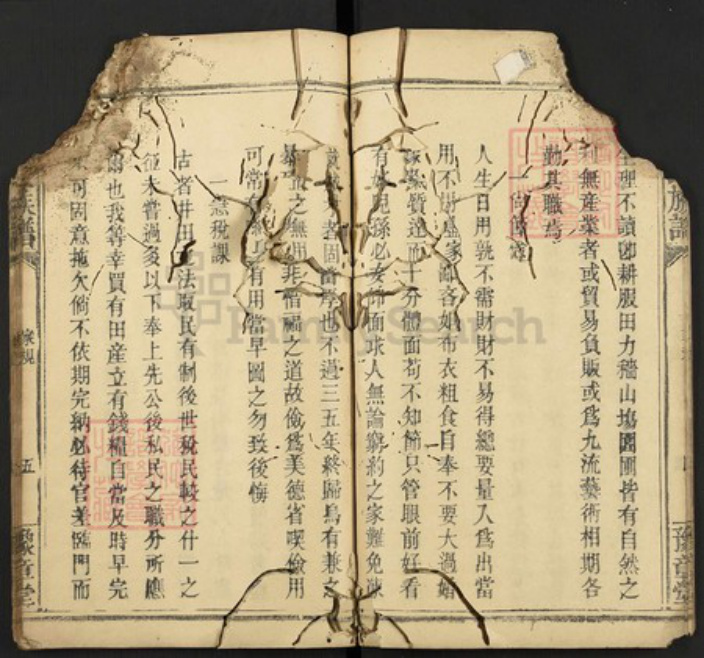 生理不讀卽耕服田力穡山塲園圃皆有自然之
利無産業者或貿易負販或爲九流藝術相期各
勤其職焉
一尚
人生日用孰不需財財不易得總要量入爲出當
用不 家 吝如布衣粗食自奉不要大過婚
質達而十分體面苟不知節只管眼前好看
有 兒孫必 面求人無論窮約之家難免凍
者固 也不過三五年終歸烏有兼之
之無 非惜福之道故儉爲美德省喫儉用
可常 有用當早圖之勿致後悔
一 稅課
古者井田之法取民有制後世稅民較之什一之
征未嘗過多以下奉上先公後私民之職分所應
爾也我等幸買有田産立有錢糧自當及時早完
可固意拖欠倘不依期完納必待官差臨門而
族譜
家規
五
豫章堂
族譜
豫章堂
FamilySearch